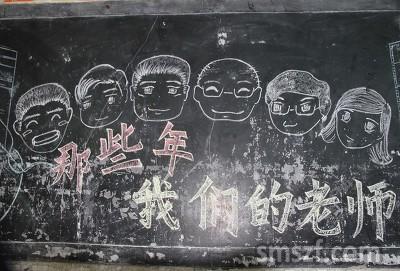 那些年
我们的老师
smszf.com